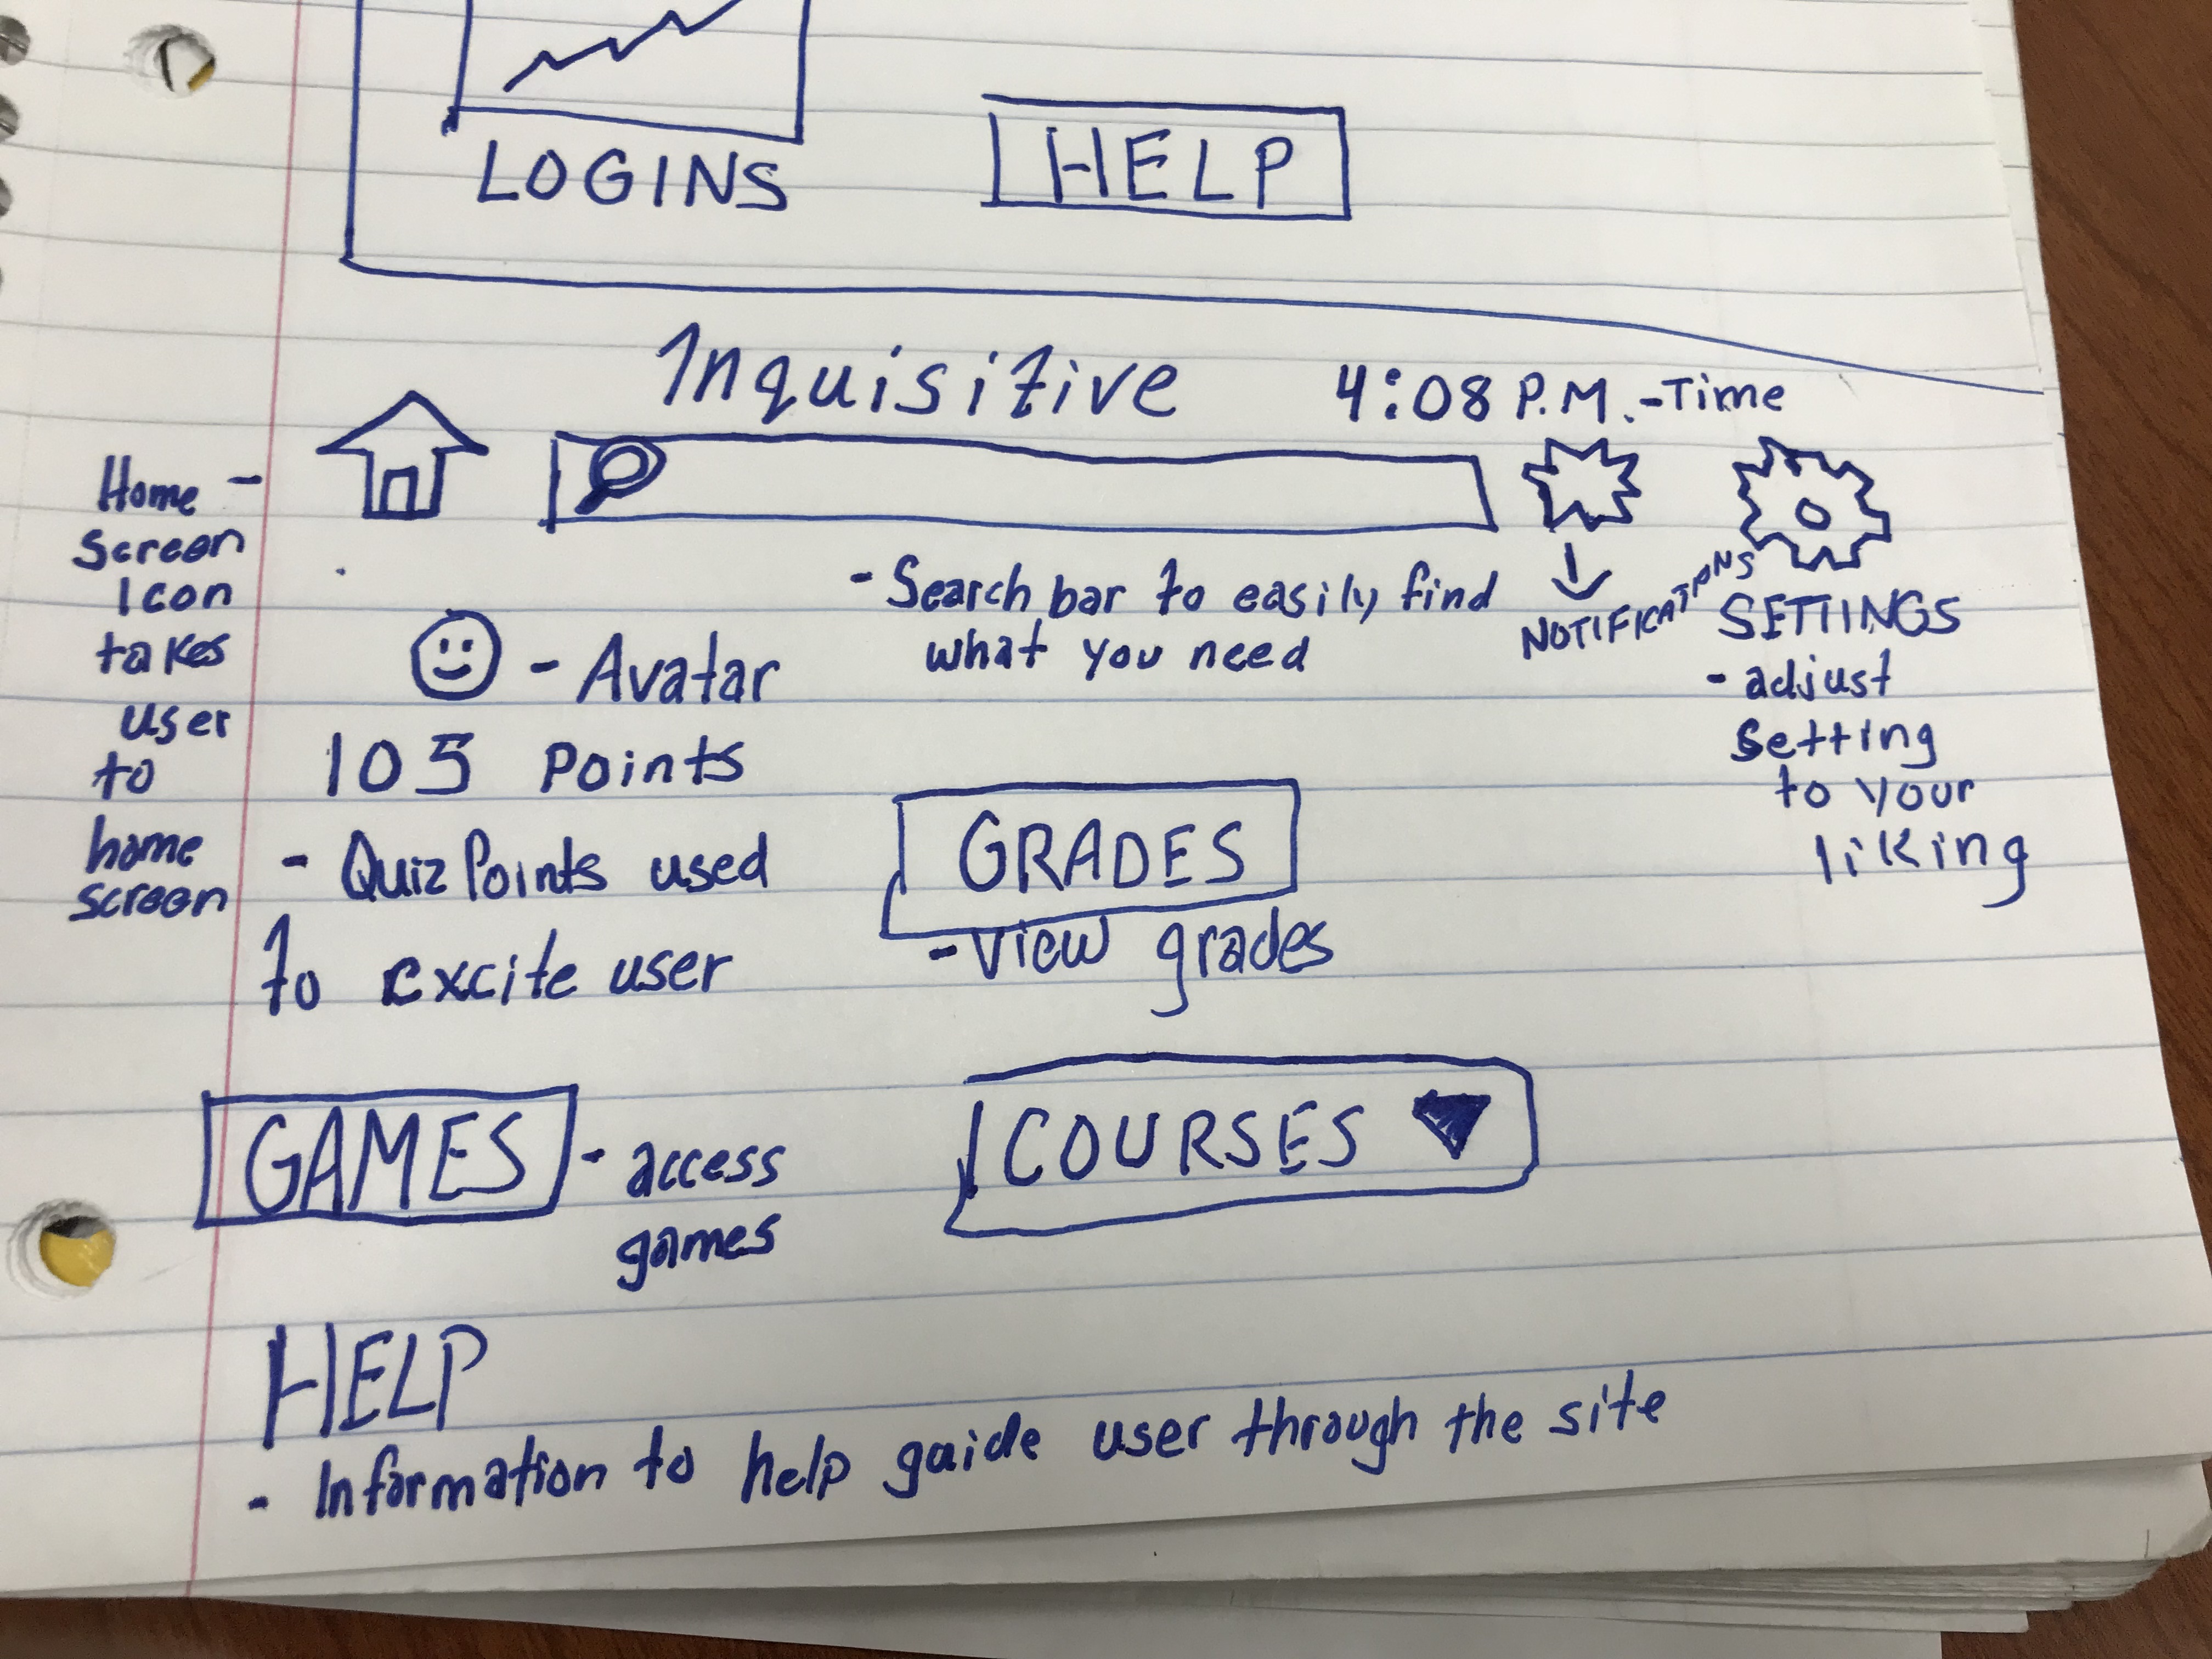 LOGINS
HELP
Inquisitive 4:08 P.M. - Time
Home -
Screen
Icon
takes
user
to
home
screen
- Search bar to easily find
what you need
NOTIFICATIONS
SETTINGS
- adjust
setting
to your
liking
- Avatar
105 Points
- Quiz Points used
to excite user
GRADES
- View grades
GAMES
- access
games
COURSES
HELP
- Information to help guide user through the site